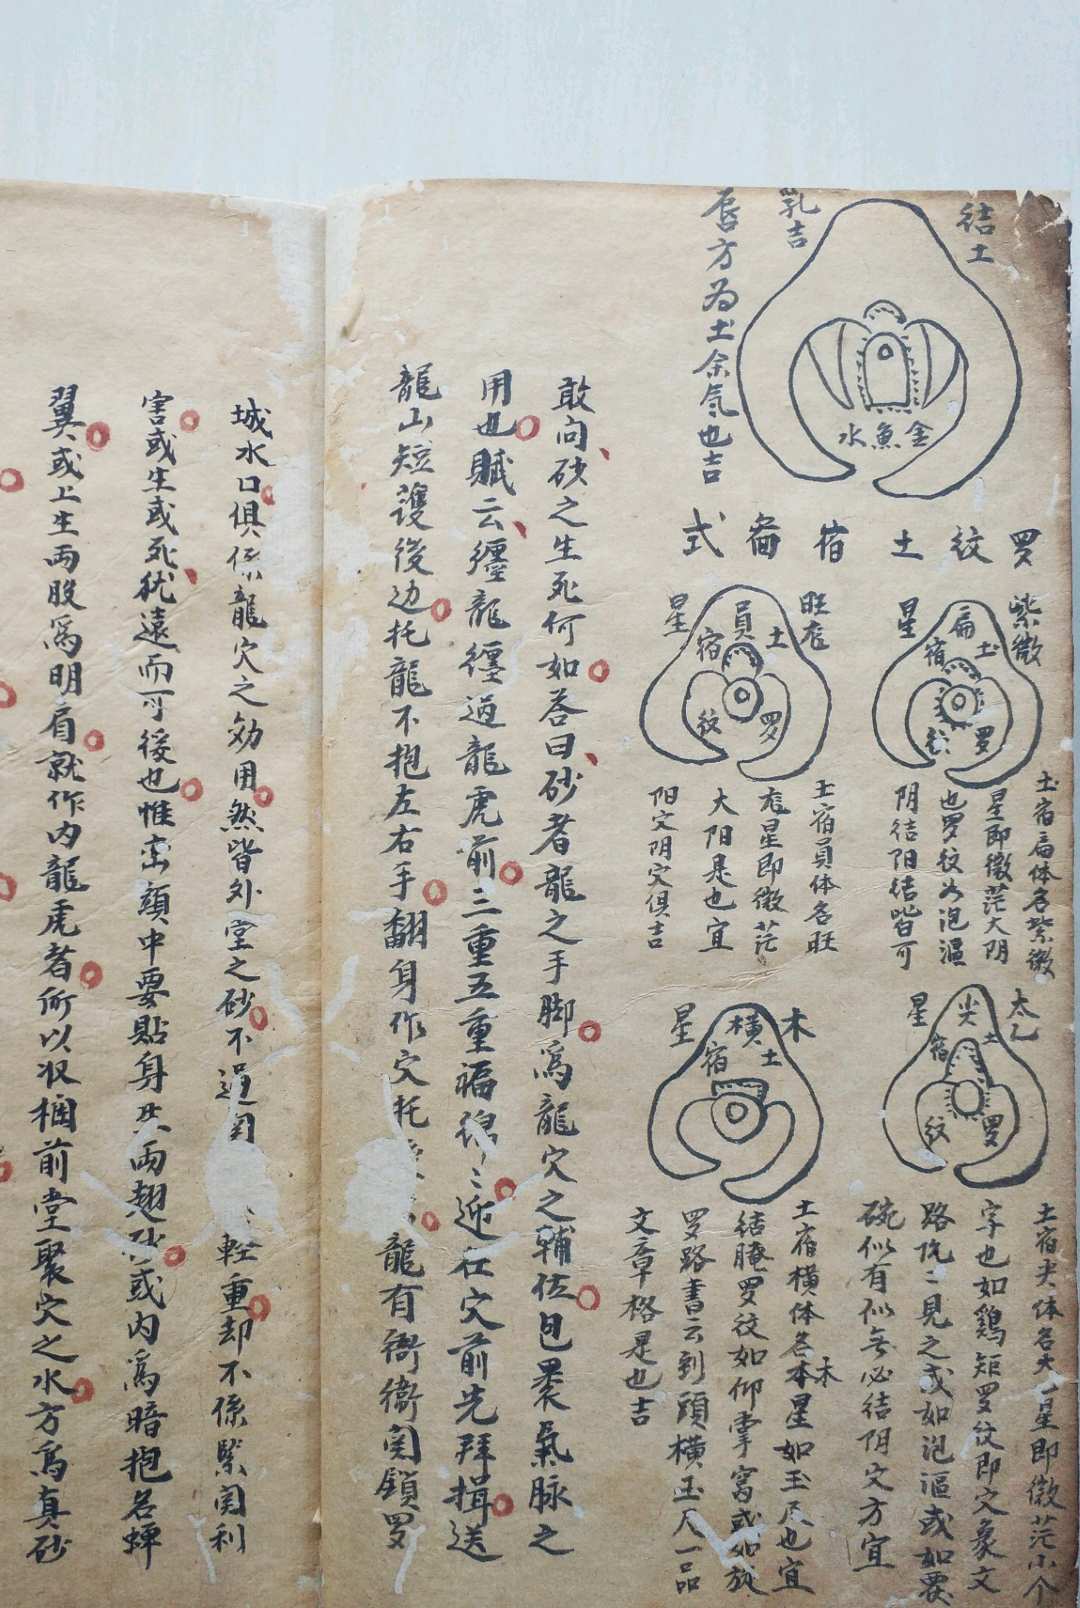 结土
乳吉
唇方为土余气也吉
金魚水
罗紋土宿啚式
紫微
扁土宿
星
罗
旺尨
員土宿
星
罗紋
土宿扁体名紫微
星即微茫大阴
也罗紋如泡漚
阴结阳结皆可
土宿員体名旺
尨星即微茫
大阳是也宜
阳穴阴穴俱吉
太乙
尖土宿
星
罗紋
木
横土宿
星
土宿尖体名太乙星即微茫小个
字也如鷄矩罗紋即穴象文
路隐二見之或如泡漚或如覆
碗似有似無必结阴穴方宜
土宿横体名本木星如玉尺也宜
结腌罗紋如仰掌窩或如旋
罗路書云到頭横玉尺一品
文章格是也吉
敢向砂之生死何如荅曰砂者龍之手脚爲龍穴之輔佐包裹氣脉之
用也賦云纏龍纏過龍虎前三重五重福綿二近在穴前先拜揖送
龍山短護後边托龍不抱左右手翻身作穴托龍有衙衛関鎖罗
城水口俱係龍穴之効用然皆外堂之砂不過関輕重却不係緊関利
害或生或死犹遠而可後也惟峦頭中要貼身其两翅砂或内爲暗抱名蝉
翼或上生两股爲明肩就作内龍虎者所以收欄前堂聚穴之水方爲真砂